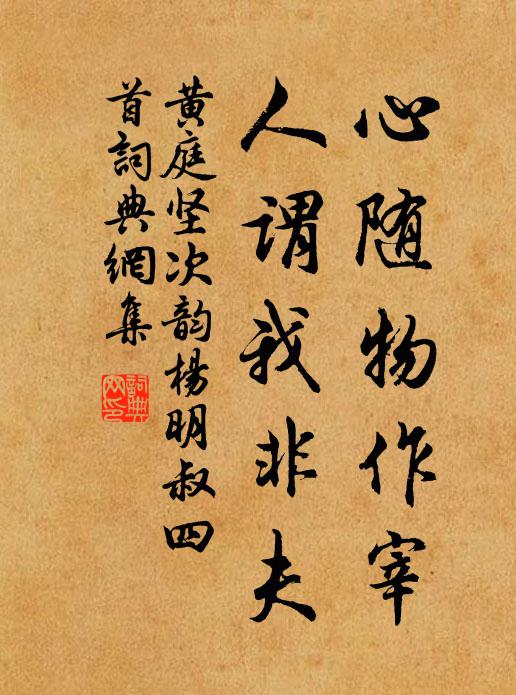 心随物作宰
人谓我非夫
黄庭坚次韵杨明叔四
首詞典網集
詞典网印